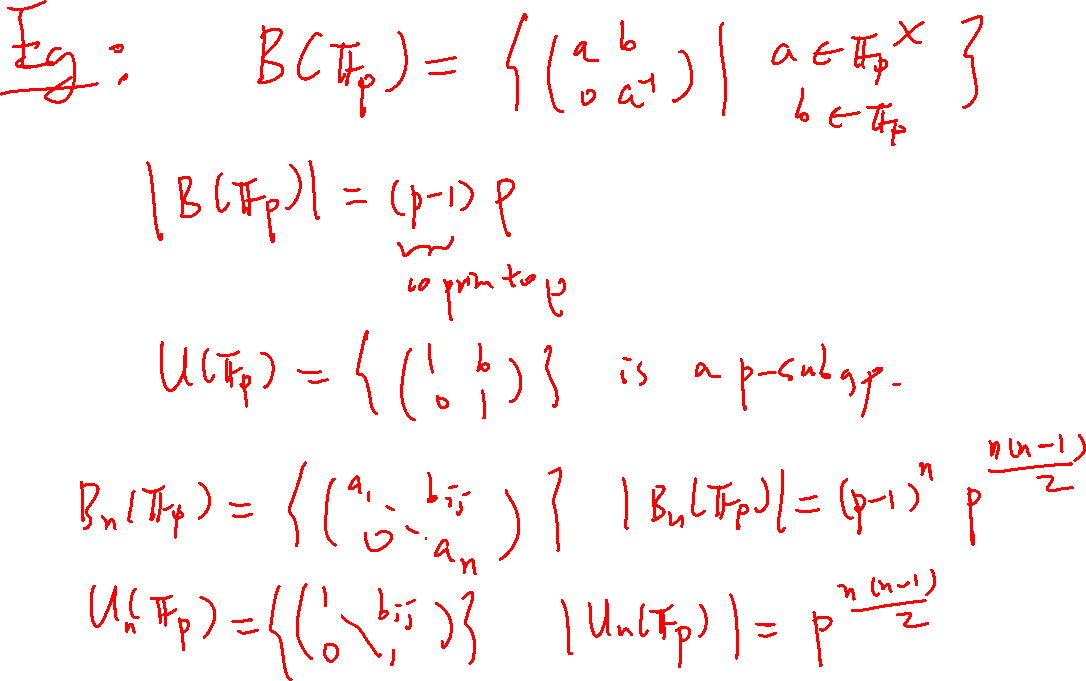 Eg: B(𝔽_p) = { (a b; 0 a⁻¹) | a ∈ 𝔽_p^×, b ∈ 𝔽_p }
|B(𝔽_p)| = (p-1) p
coprim to p
U(𝔽_p) = { (1 b; 0 1) } is a p-subgp.
B_n(𝔽_p) = { (a_1 ⋱ b_ij; 0 a_n) } |B_n(𝔽_p)| = (p-1)^n p^{n(n-1)/2}
U_n(𝔽_p) = { (1 \ b_ij; 0 1) } |U_n(𝔽_p)| = p^{n(n-1)/2}